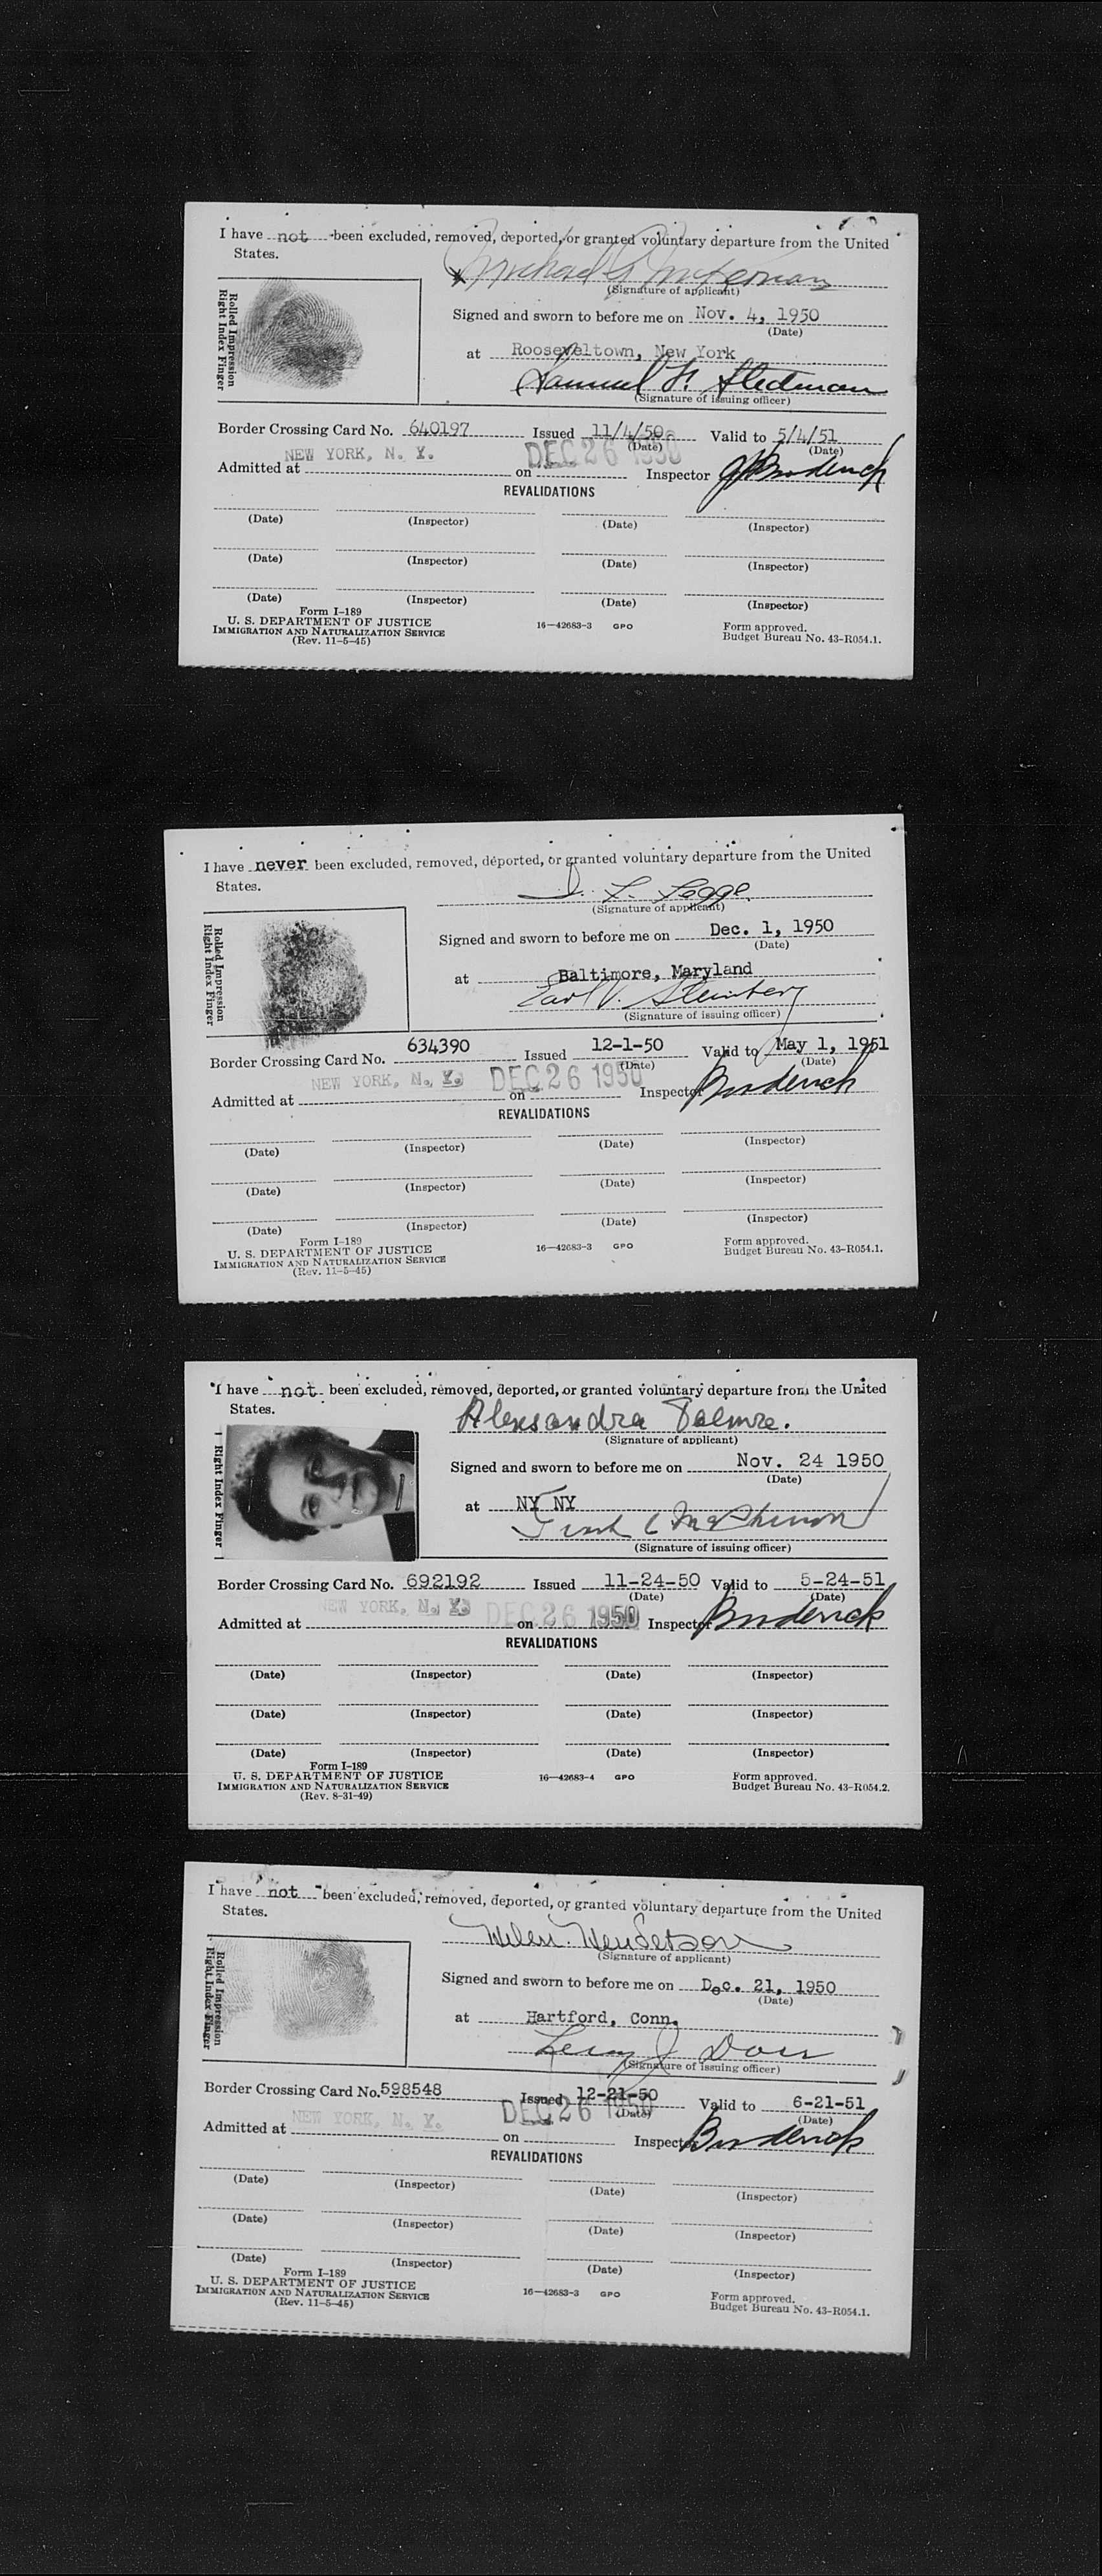 I have not been excluded, removed, deported, or granted voluntary departure from the United
States.
(Signature of applicant)
Rolled Impression
Right Index Finger
Signed and sworn to before me on Nov. 4, 1950
(Date)
at Rooseveltown, New York
Samuel H. Stedman
(Signature of issuing officer)
Border Crossing Card No. 640197 Issued 11/4/50 Valid to 5/4/51
(Date) (Date)
Admitted at NEW YORK, N. Y. on DEC 26 1950 Inspector Broderick
REVALIDATIONS
(Date) (Inspector) (Date) (Inspector)
(Date) (Inspector) (Date) (Inspector)
(Date) (Inspector) (Date) (Inspector)
Form I-189
U. S. DEPARTMENT OF JUSTICE
IMMIGRATION AND NATURALIZATION SERVICE
(Rev. 11-5-45)
16—42683-3 GPO
Form approved.
Budget Bureau No. 43-R054.1.
I have never been excluded, removed, deported, or granted voluntary departure from the United
States.
Legge
(Signature of applicant)
Rolled Impression
Right Index Finger
Signed and sworn to before me on Dec. 1, 1950
(Date)
at Baltimore, Maryland
Earl V. Steinberg
(Signature of issuing officer)
Border Crossing Card No. 634390 Issued 12-1-50 Valid to May 1, 1951
(Date) (Date)
Admitted at NEW YORK, N. Y. on DEC 26 1950 Inspector Broderick
REVALIDATIONS
(Date) (Inspector) (Date) (Inspector)
(Date) (Inspector) (Date) (Inspector)
(Date) (Inspector) (Date) (Inspector)
Form I-189
U. S. DEPARTMENT OF JUSTICE
IMMIGRATION AND NATURALIZATION SERVICE
(Rev. 11-5-45)
16—42683-3 GPO
Form approved.
Budget Bureau No. 43-R054.1.
I have not been excluded, removed, deported, or granted voluntary departure from the United
States.
Alexsandra
(Signature of applicant)
Right Index Finger
Signed and sworn to before me on Nov. 24 1950
(Date)
at NY NY
(Signature of issuing officer)
Border Crossing Card No. 692192 Issued 11-24-50 Valid to 5-24-51
(Date) (Date)
Admitted at NEW YORK, N. Y. on DEC 26 1950 Inspector Broderick
REVALIDATIONS
(Date) (Inspector) (Date) (Inspector)
(Date) (Inspector) (Date) (Inspector)
(Date) (Inspector) (Date) (Inspector)
Form I-189
U. S. DEPARTMENT OF JUSTICE
IMMIGRATION AND NATURALIZATION SERVICE
(Rev. 8-31-49)
16—42683-4 GPO
Form approved.
Budget Bureau No. 43-R054.2.
I have not been excluded, removed, deported, or granted voluntary departure from the United
States.
Helen Henderson
(Signature of applicant)
Rolled Impression
Right Index Finger
Signed and sworn to before me on Dec. 21, 1950
(Date)
at Hartford, Conn.
(Signature of issuing officer)
Border Crossing Card No. 598548 Issued 12-21-50 Valid to 6-21-51
(Date) (Date)
Admitted at NEW YORK, N. Y. on DEC 26 1950 Inspector Broderick
REVALIDATIONS
(Date) (Inspector) (Date) (Inspector)
(Date) (Inspector) (Date) (Inspector)
(Date) (Inspector) (Date) (Inspector)
Form I-189
U. S. DEPARTMENT OF JUSTICE
IMMIGRATION AND NATURALIZATION SERVICE
(Rev. 11-5-45)
16—42683-3 GPO
Form approved.
Budget Bureau No. 43-R054.1.